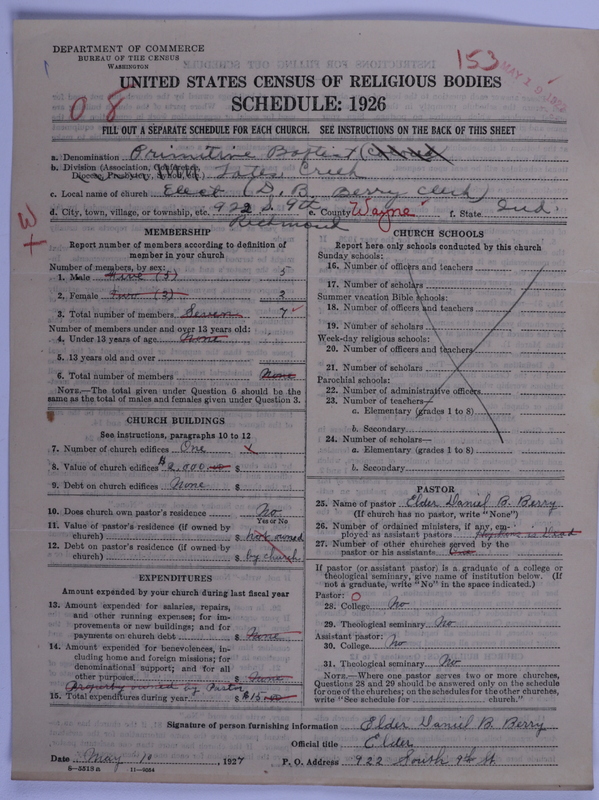 DEPARTMENT OF COMMERCE
BUREAU OF THE CENSUS
WASHINGTON
153
MAY 19 1927
08
UNITED STATES CENSUS OF RELIGIOUS BODIES
SCHEDULE: 1926
FILL OUT A SEPARATE SCHEDULE FOR EACH CHURCH. SEE INSTRUCTIONS ON THE BACK OF THIS SHEET
a. Denomination Primitive Baptist (Colored)
b. Division (Association, Conference, Diocese, Presbytery, Synod, etc.) Tates Creek
c. Local name of church Elect (D. B. Berry Clerk)
d. City, town, village, or township, etc. 922 S. 9th Richmond e. County Wayne f. State Ind.
MEMBERSHIP
Report number of members according to definition of member in your church
Number of members, by sex:
1. Male Five (5) 5
2. Female 3
3. Total number of members Seven 7
Number of members under and over 13 years old:
4. Under 13 years of age None
5. 13 years old and over
6. Total number of members None
NOTE.—The total given under Question 6 should be the same as the total of males and females given under Question 3.
CHURCH BUILDINGS
See instructions, paragraphs 10 to 12
7. Number of church edifices One
8. Value of church edifices $2,000.00 $
9. Debt on church edifices None $
10. Does church own pastor's residence No
Yes or No
11. Value of pastor's residence (if owned by church) $ not owned
12. Debt on pastor's residence (if owned by church) $ by church
EXPENDITURES
Amount expended by your church during last fiscal year
13. Amount expended for salaries, repairs, and other running expenses; for improvements or new buildings; and for payments on church debt $ None
14. Amount expended for benevolences, including home and foreign missions; for denominational support; and for all other purposes $ None
Property owned by Pastor
15. Total expenditures during year $ $15.00
CHURCH SCHOOLS
Report here only schools conducted by this church
Sunday schools:
16. Number of officers and teachers
17. Number of scholars
Summer vacation Bible schools:
18. Number of officers and teachers
19. Number of scholars
Week-day religious schools:
20. Number of officers and teachers
21. Number of scholars
Parochial schools:
22. Number of administrative officers
23. Number of teachers—
a. Elementary (grades 1 to 8)
b. Secondary
24. Number of scholars—
a. Elementary (grades 1 to 8)
b. Secondary
PASTOR
25. Name of pastor Elder Daniel B. Berry
(If church has no pastor, write "None")
26. Number of ordained ministers, if any, employed as assistant pastors is Dead
27. Number of other churches served by the pastor or his assistants
If pastor (or assistant pastor) is a graduate of a college or theological seminary, give name of institution below. (If not a graduate, write "No" in the space indicated.)
Pastor: 0
28. College No
29. Theological seminary No
Assistant pastor:
30. College No
31. Theological seminary No
NOTE.—Where one pastor serves two or more churches, Questions 28 and 29 should be answered only on the schedule for one of the churches; on the schedules for the other churches, write "See schedule for church."
Signature of person furnishing information Elder Daniel B. Berry
Official title Elder
Date May 10, 1927 P. O. Address 922 South 9th St
8—5313a 11—9064